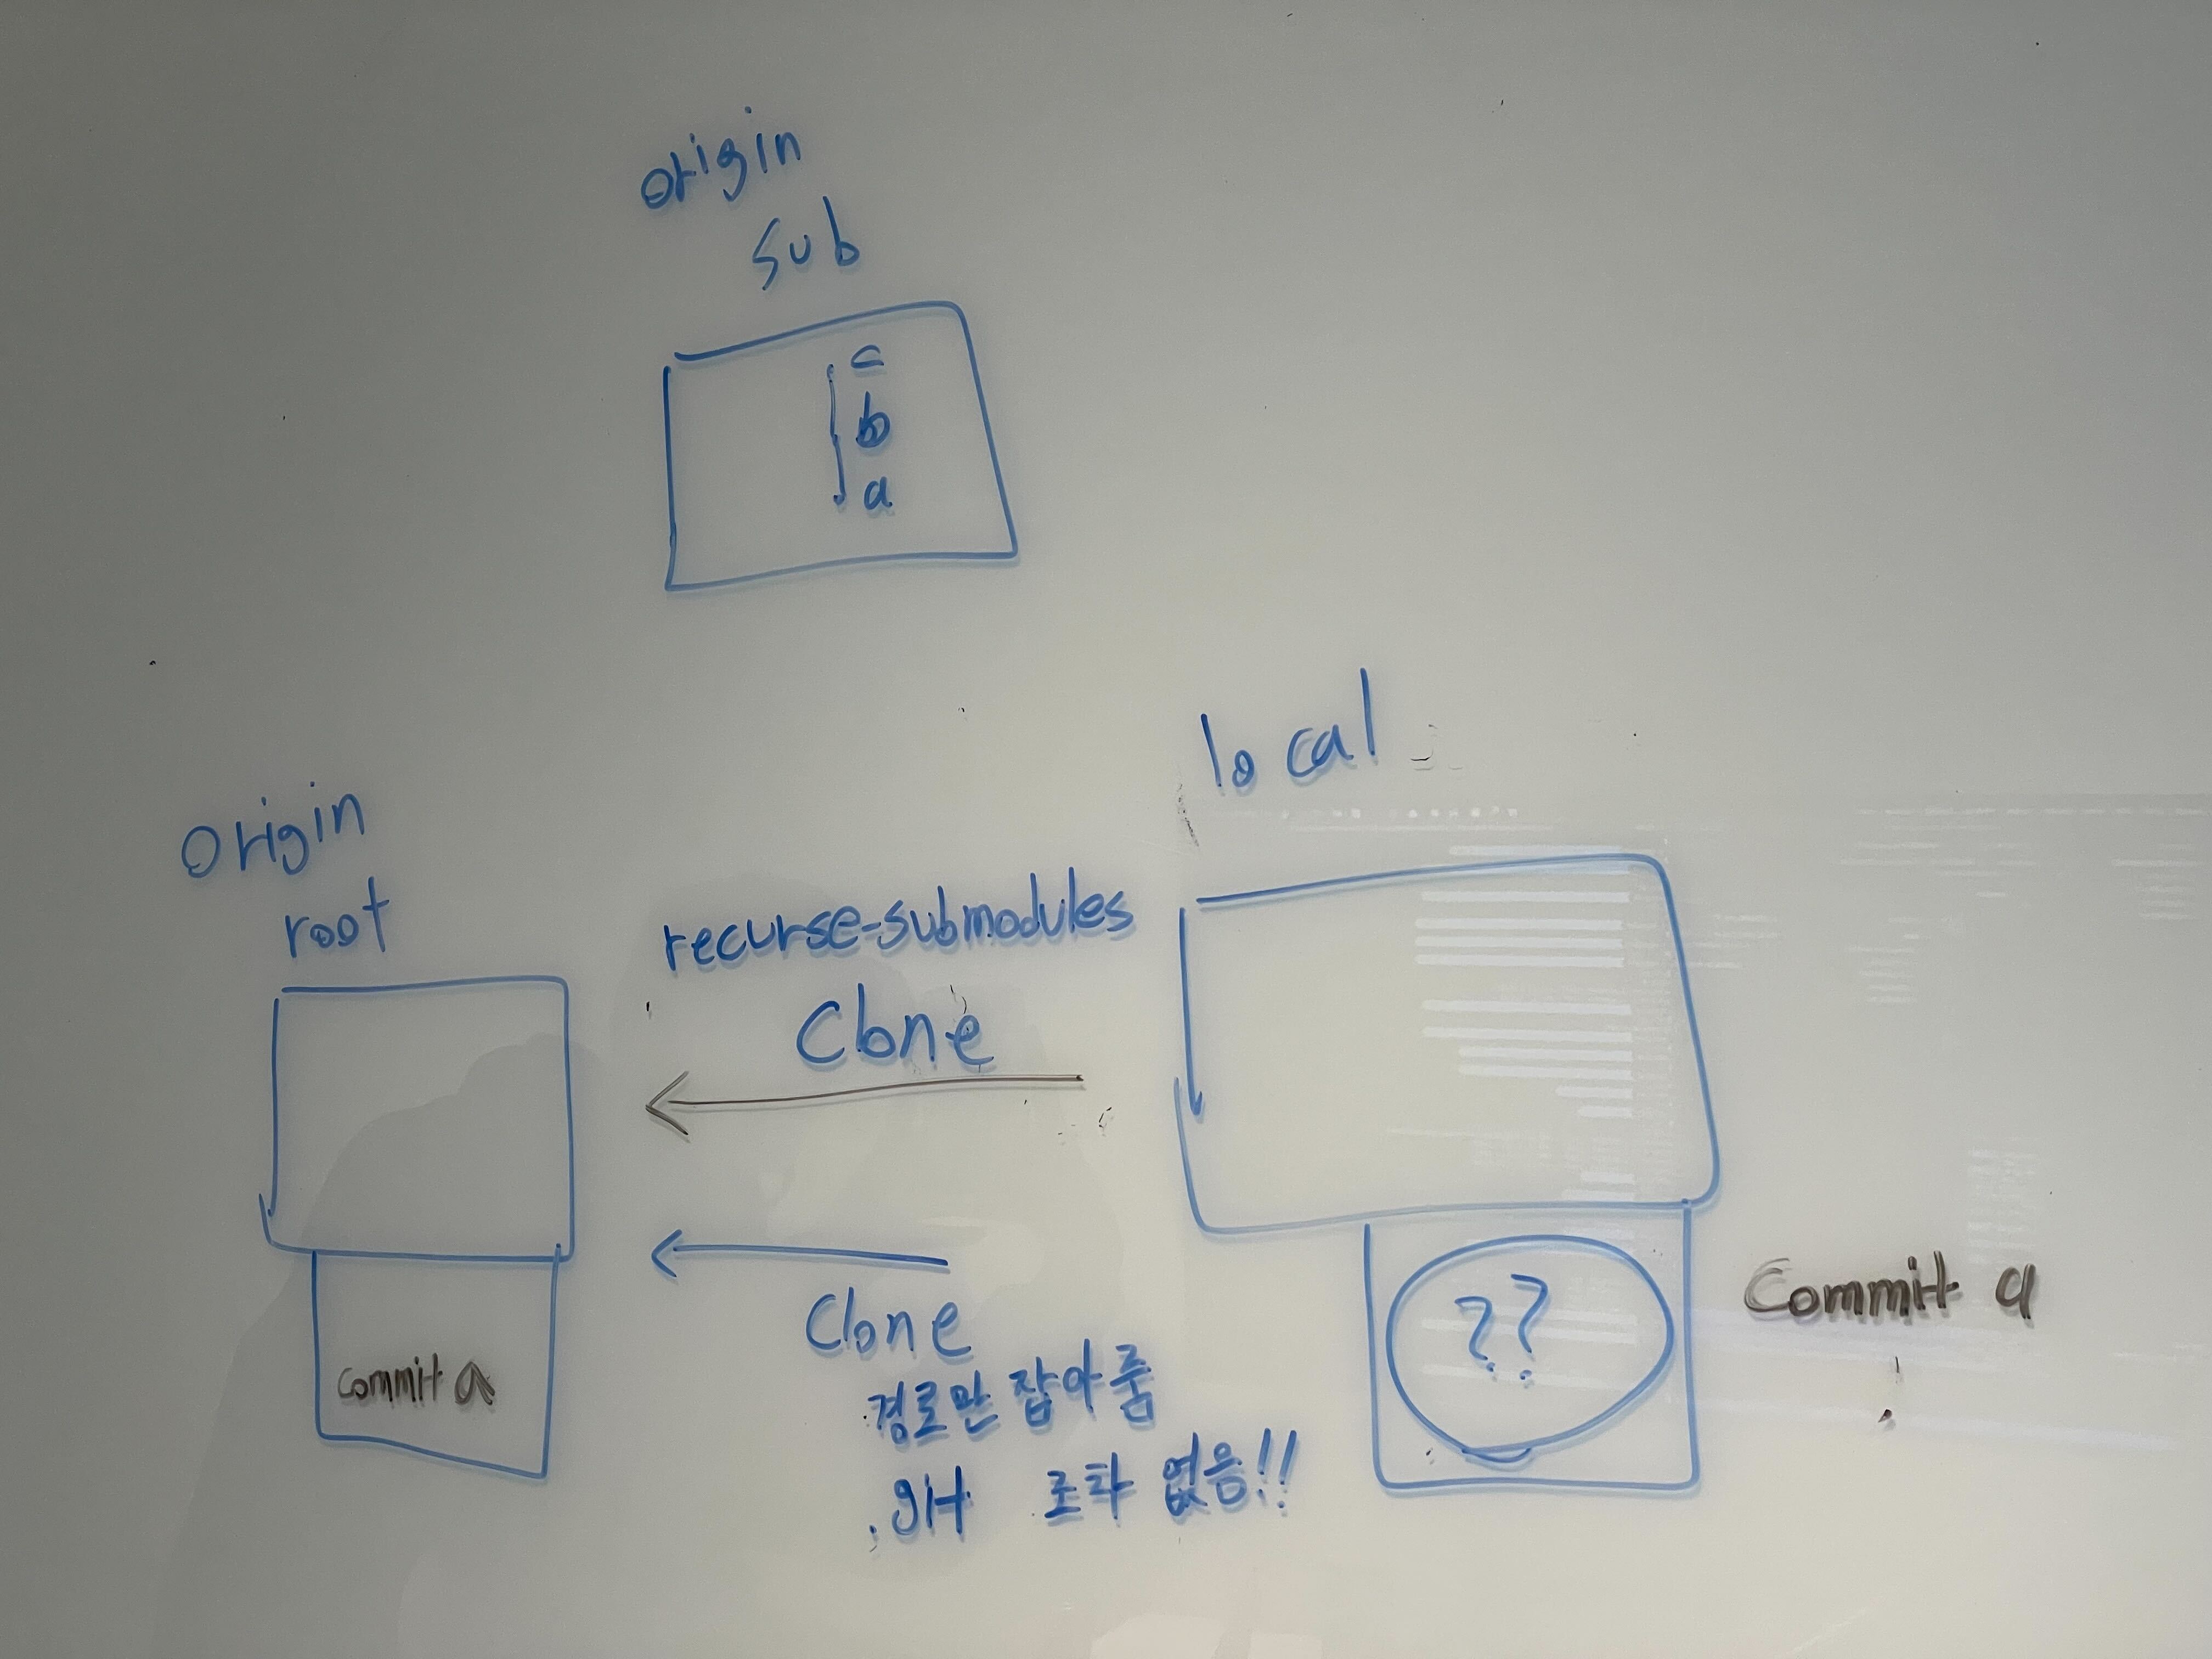 origin
sub
c
b
a
local
origin
root
recurse-submodules
Clone
Clone
경로만 잡아줌
.git 조차 없음!!
commit a
??
Commit a